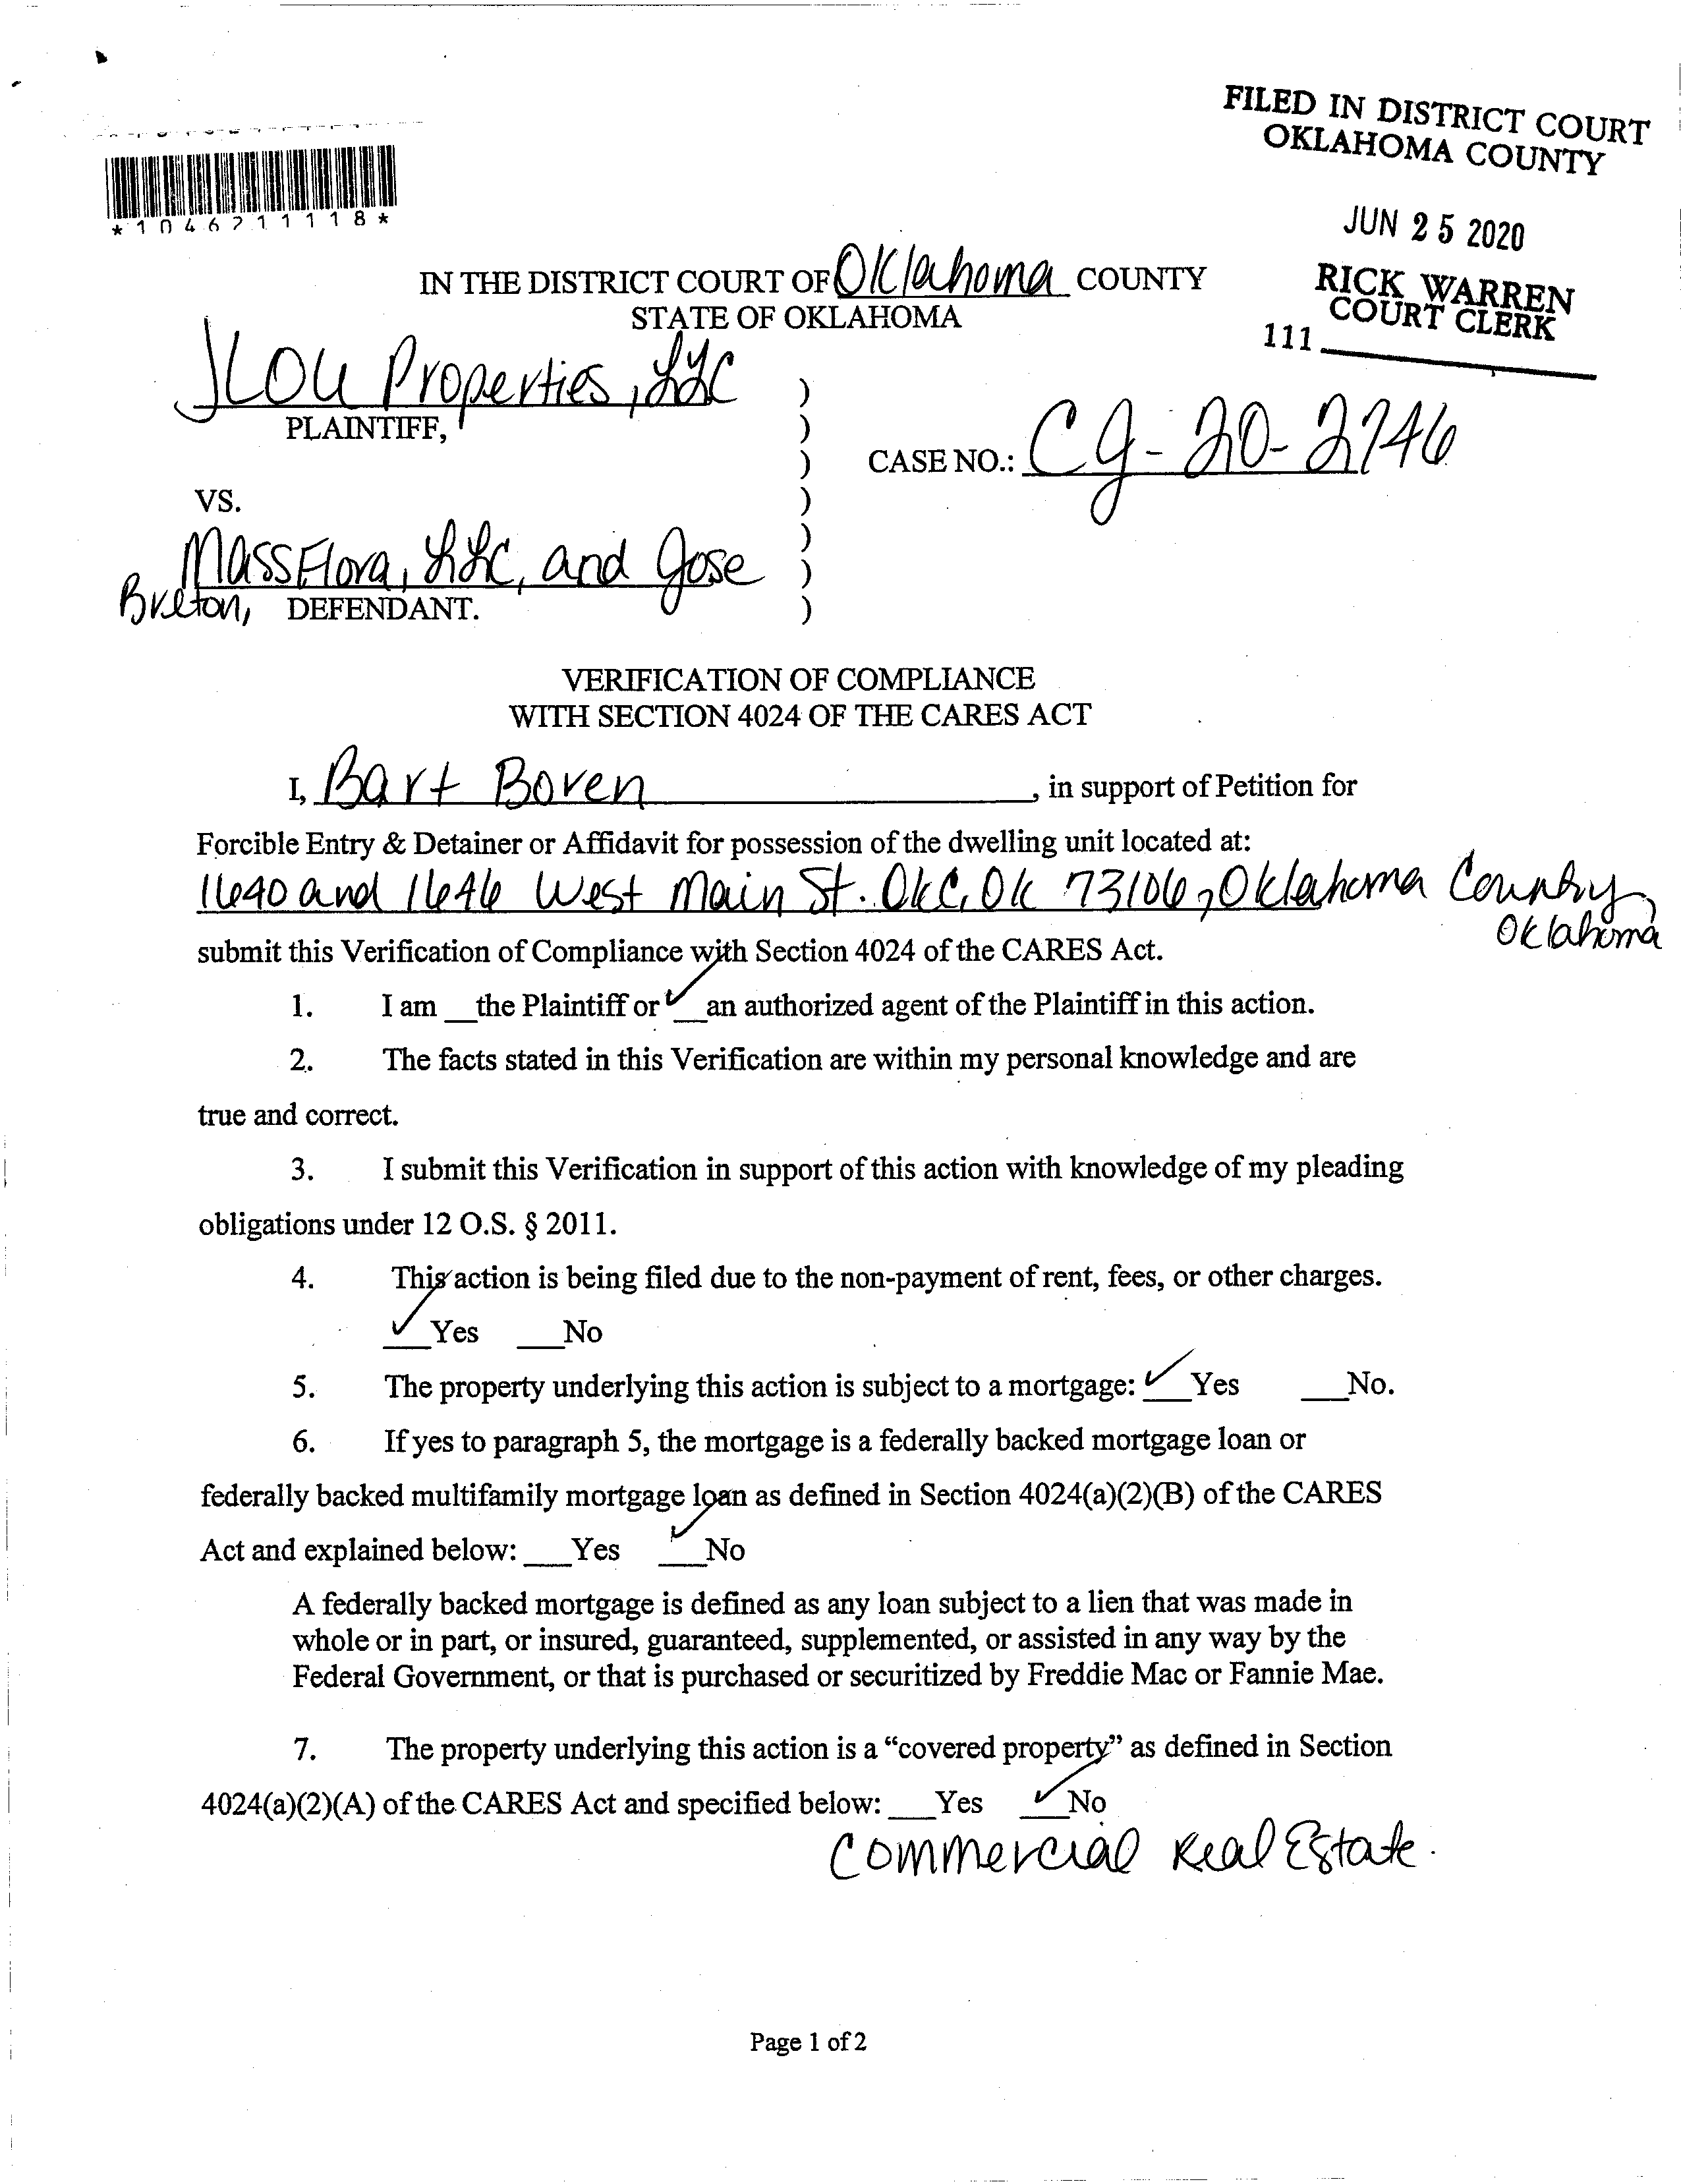 FILED IN DISTRICT COURT
OKLAHOMA COUNTY
*1046211118*
JUN 25 2020
IN THE DISTRICT COURT OF Oklahoma COUNTY
RICK WARREN
STATE OF OKLAHOMA
COURT CLERK
111
JLOU Properties, LLC )
PLAINTIFF, )
) CASE NO.: CJ-20-2746
VS. )
)
MassFlora, LLC, and Jose )
Breton, DEFENDANT. )
VERIFICATION OF COMPLIANCE
WITH SECTION 4024 OF THE CARES ACT
I, Bart Boren, in support of Petition for
Forcible Entry & Detainer or Affidavit for possession of the dwelling unit located at:
1640 and 1646 West Main St. OKC, OK 73106, Oklahoma County,
Oklahoma
submit this Verification of Compliance with Section 4024 of the CARES Act.
1. I am __the Plaintiff or ✓__an authorized agent of the Plaintiff in this action.
2. The facts stated in this Verification are within my personal knowledge and are
true and correct.
3. I submit this Verification in support of this action with knowledge of my pleading
obligations under 12 O.S. § 2011.
4. This action is being filed due to the non-payment of rent, fees, or other charges.
✓ Yes ___No
5. The property underlying this action is subject to a mortgage: ✓ Yes ___No.
6. If yes to paragraph 5, the mortgage is a federally backed mortgage loan or
federally backed multifamily mortgage loan as defined in Section 4024(a)(2)(B) of the CARES
Act and explained below: ___Yes ✓ No
A federally backed mortgage is defined as any loan subject to a lien that was made in
whole or in part, or insured, guaranteed, supplemented, or assisted in any way by the
Federal Government, or that is purchased or securitized by Freddie Mac or Fannie Mae.
7. The property underlying this action is a “covered property” as defined in Section
4024(a)(2)(A) of the CARES Act and specified below: ___Yes ✓ No
Commercial Real Estate.
Page 1 of 2